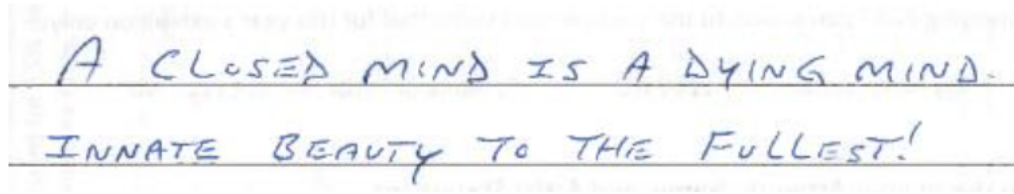 A CLOSED MIND IS A DYING MIND.
INNATE BEAUTY TO THE FULLEST!